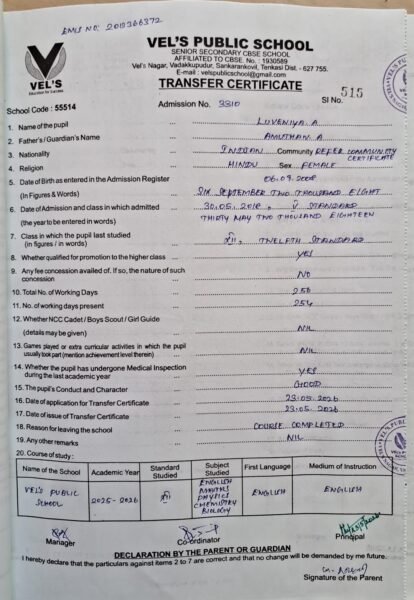 EMIS NO: 2019366372
VEL'S PUBLIC SCHOOL
SENIOR SECONDARY CBSE SCHOOL
AFFILIATED TO CBSE No. : 1930589
Vel's Nagar, Vadakkupudur, Sankarankovil, Tenkasi Dist. - 627 755.
E-mail : velspublicschool@gmail.com
VEL'S
TRANSFER CERTIFICATE
School Code : 55514
Admission No. 3310
Sl No. 515
1. Name of the pupil ... LUVENIYA. A
2. Father's / Guardian's Name ... AMUTHAN A
3. Nationality ... INDIAN Community REFER COMMUNITY CERTIFICATE
4. Religion ... HINDU Sex FEMALE
5. Date of Birth as entered in the Admission Register ... 06.09.2008
(In Figures & Words) ... SIX SEPTEMBER TWO THOUSAND EIGHT
6. Date of Admission and class in which admitted ... 30.05.2018, V STANDARD
(the year to be entered in words) THIRTY MAY TWO THOUSAND EIGHTEEN
7. Class in which the pupil last studied
(in figures / in words) ... XII, TWELFTH STANDARD
8. Whether qualified for promotion to the higher class ... YES
9. Any fee concession availed of. If so, the nature of such
concession ... NO
10. Total No. of Working Days ... 256
11. No. of working days present ... 254
12. Whether NCC Cadet / Boys Scout / Girl Guide
(details may be given) ... NIL
13. Games played or extra curricular activities in which the pupil
usually took part (mention achievement level therein) ... NIL
14. Whether the pupil has undergone Medical Inspection
during the last academic year ... YES
15. The pupil's Conduct and Character ... GOOD
16. Date of application for Transfer Certificate ... 23.05.2026
17. Date of issue of Transfer Certificate ... 23.05.2026
18. Reason for leaving the school ... COURSE COMPLETED
19. Any other remarks ... NIL
20. Course of study :
Name of the School Academic Year Standard Studied Subject Studied First Language Medium of Instruction
VEL'S PUBLIC SCHOOL 2025-2026 XII ENGLISH MATHS PHYSICS CHEMISTRY BIOLOGY ENGLISH ENGLISH
Manager Co-ordinator Principal
DECLARATION BY THE PARENT OR GUARDIAN
I hereby declare that the particulars against items 2 to 7 are correct and that no change will be demanded by me future.
Signature of the Parent